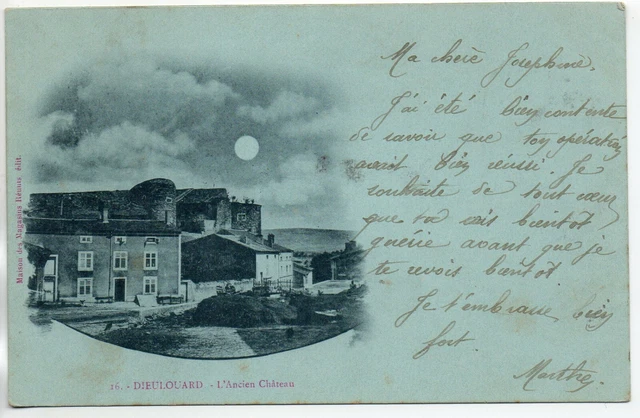 Ma chère Joséphine.
J'ai été bien contente
de savoir que ton opération
avait bien réussi. Je
souhaite de tout cœur
que tu sois bientôt
guérie avant que je
te revois bientôt
Je t'embrasse bien
fort.
Marthe.
Maison des Magasins Réunis, édit.
16. - DIEULOUARD - L'Ancien Château